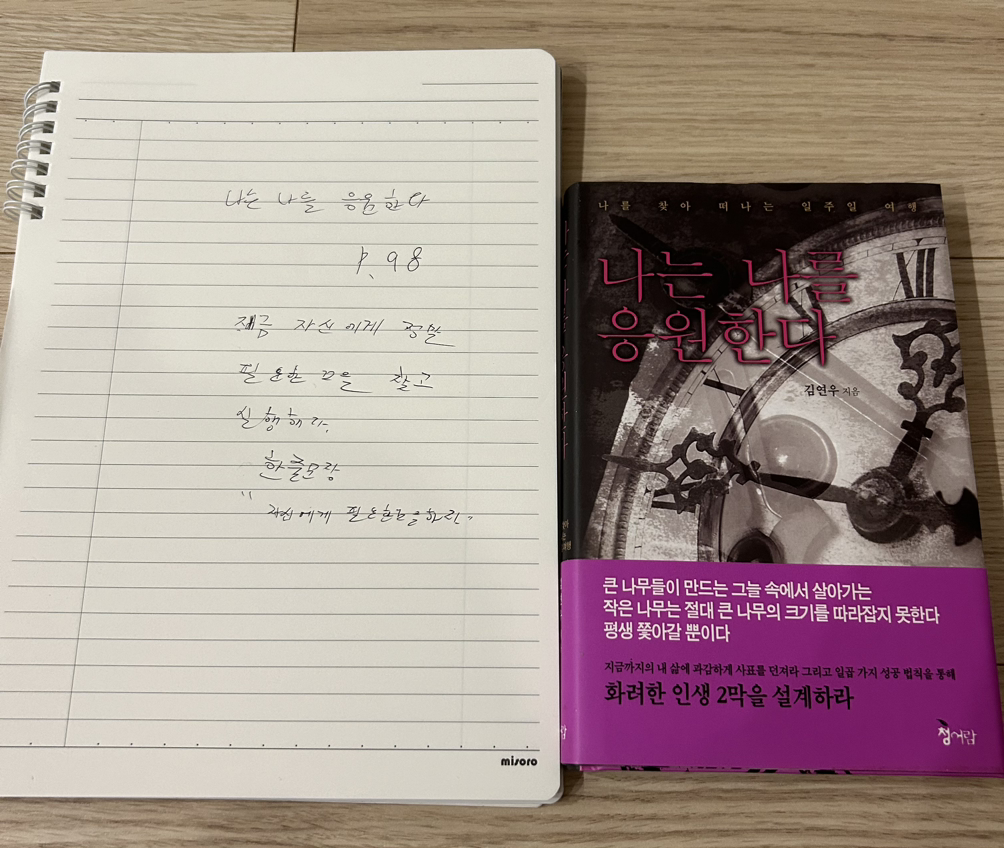 나는 나를 응원한다
P. 98
지금 자신에게 정말
필요한 것을 찾고
실행해라.
"자신에게 필요한 것을 하라."
misoro
나를 찾아 떠나는 일주일 여행
나는 나를
응원한다
김연우 지음
XII
큰 나무들이 만드는 그늘 속에서 살아가는
작은 나무는 절대 큰 나무의 크기를 따라잡지 못한다
평생 쫓아갈 뿐이다
지금까지의 내 삶에 과감하게 사표를 던져라 그리고 일곱 가지 성공 법칙을 통해
화려한 인생 2막을 설계하라
청어람